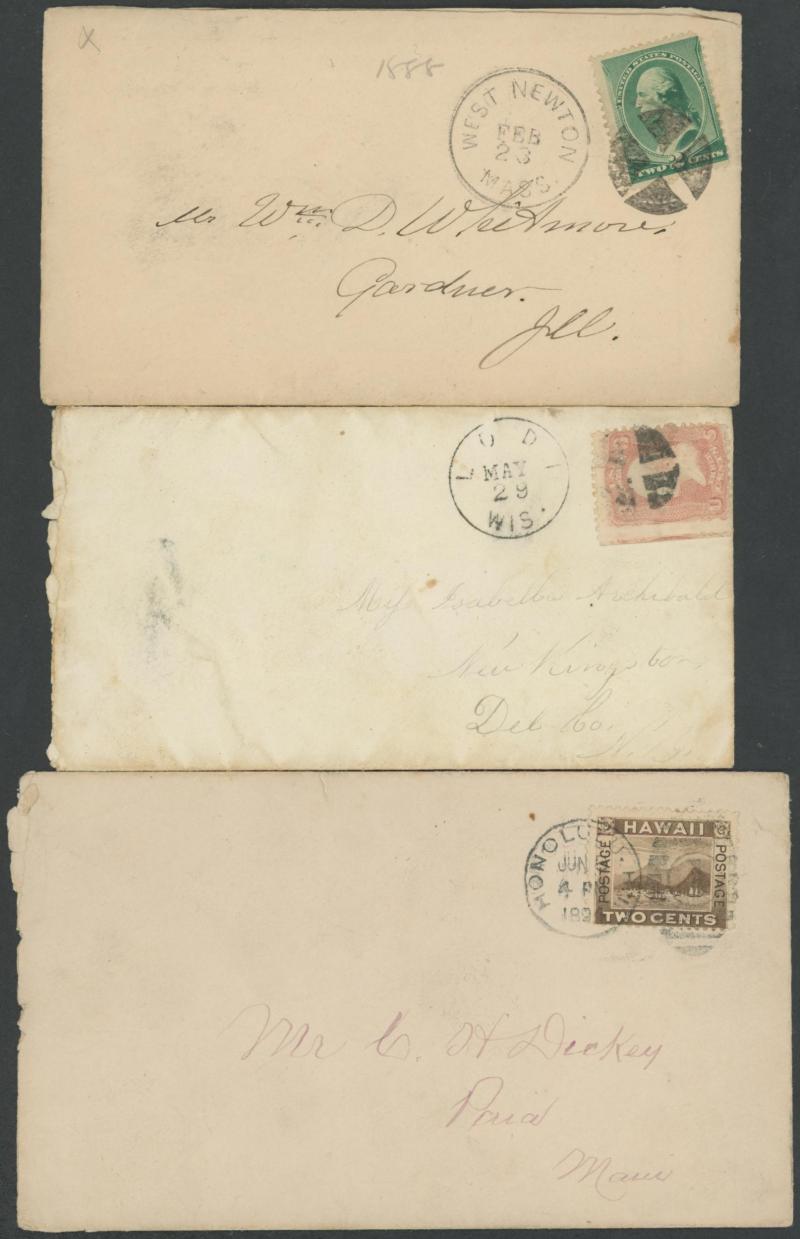 X
1888
WEST NEWTON
FEB
23
MASS.
UNITED STATES POSTAGE
TWO 2 CENTS
Mr Wm D. Whitmore,
Gardner.
Ill.
LODI
MAY
29
WIS.
Miss Isabella Archibald
New Kingston
Del Co.
N.Y.
HONOLULU
JUN
4 P
189
HAWAII
POSTAGE
POSTAGE
TWO CENTS
Mr C. H Dickey
Paia
Maui